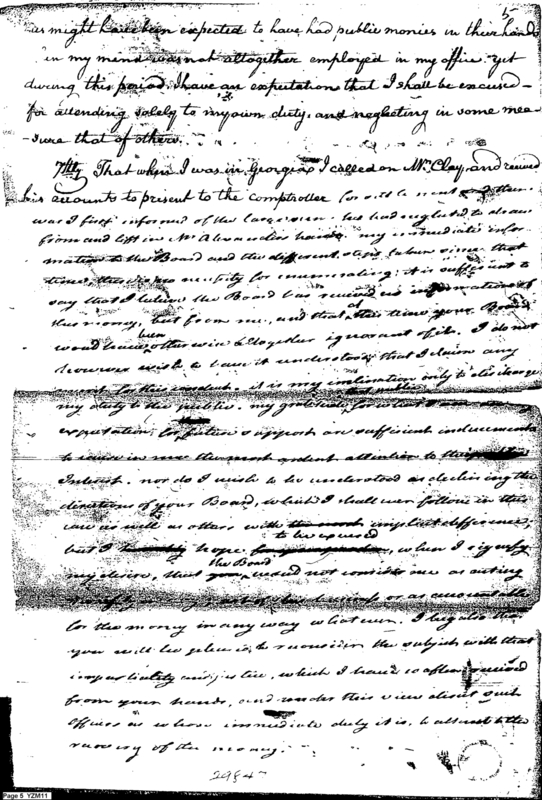 5
as might have been expected to have had public monies in their hands
in my mind was not altogether employed in my office. yet
during this period I have an expectation that I shall be excused
for attending solely to my own duty and neglecting in some mea-
-sure that of others.
7thly That when I was in Georgia I called on Mr. Clay, and received
his accounts to present to the comptroller for settlement and then
was I first informed of the large sum he had neglected to draw
from and left in Mr Alexander's hands. my immediate infor
mation to the Board and the different steps taken since that
time, there is no necessity for enumerating; it is sufficient to
say that I believe the Board has received no information of
this money, but from me, and that at this time your Board
would have been otherwise altogether ignorant of it. I do not
however wish to have it understood that I claim any
merit for this conduct. it is my inclination only to discharge
my duty to the public. my gratitude for what
expectation for future support are sufficient inducements
to in me the most ardent attention to
Interest. nor do I wish to be understood as declining the
directions of your Board, which I shall ever follow in this
case as well as others with the most implicit difference,
but I hope to be excused, when I signify
my desire, that the Board would not consider me as acting
or as accountable
for the money in any way whatever. I beg also that
you will be pleased to reconsider the subject with that
impartiality and justice, which I have so often received
from your hands, and under this view direct such
officers as whose immediate duty it is, to attend to the
recovery of the money.
2984
Page 5 YZM11